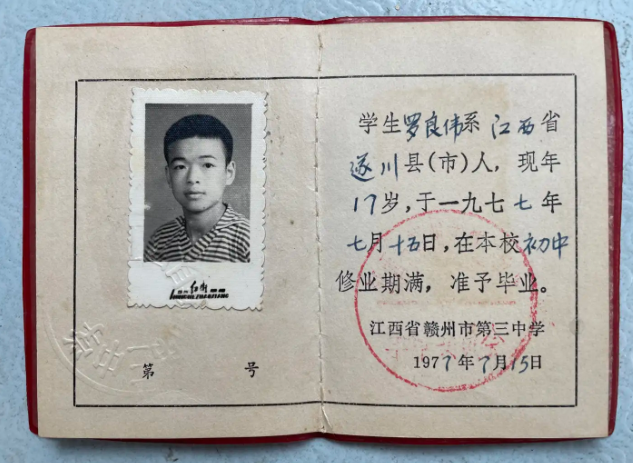 第 号
学生罗良伟系江西省
遂川县(市)人，现年
17岁，于一九七七年
七月十五日，在本校初中
修业期满，准予毕业。
江西省赣州市第三中学
1977年7月15日